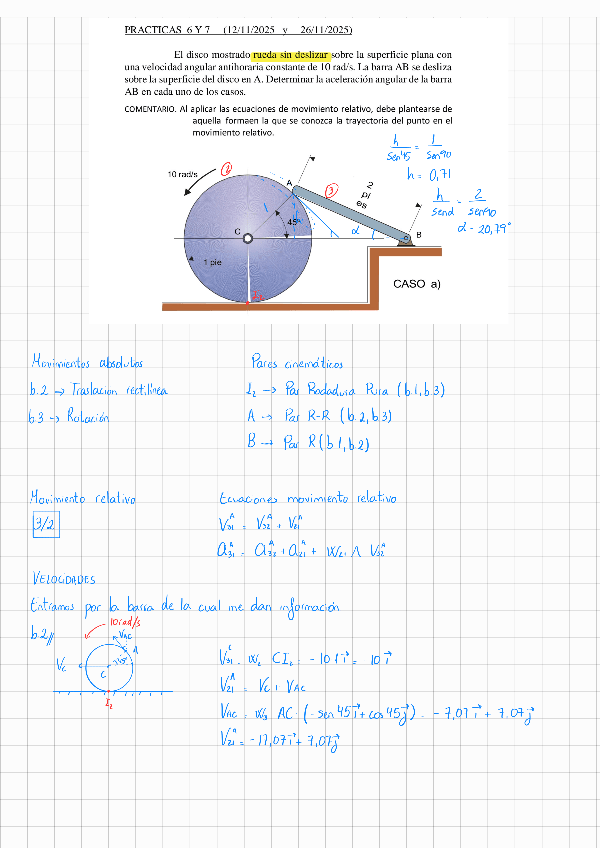 PRACTICAS 6 Y 7 (12/11/2025 y 26/11/2025)
El disco mostrado rueda sin deslizar sobre la superficie plana con
una velocidad angular antihoraria constante de 10 rad/s. La barra AB se desliza
sobre la superficie del disco en A. Determinar la aceleración angular de la barra
AB en cada uno de los casos.
COMENTARIO. Al aplicar las ecuaciones de movimiento relativo, debe plantearse de
aquella formaen la que se conozca la trayectoria del punto en el
movimiento relativo.
h/sen45 = 1/sen90
h = 0,71
h/senα = 2/sen90
α = 20,79°
10 rad/s
2
A
3
2 pi es
1
45°
h
α
C
B
1 pie
I2
CASO a)
Movimientos absolutos
b.2 → Traslacion rectilínea
b3 → Rotación
Pares cinemáticos
I2 → Par Rodadura Pura (b.1, b.3)
A → Par R-R (b.2, b.3)
B → Par R (b.1, b.2)
Movimiento relativo
3/2
Ecuaciones movimiento relativo
V31^A = V32^A + V21^A
a31^A = a32^A + a21^A + 2W21 ∧ V32^A
VELOCIDADES
Entramos por la barra de la cual me dan información
b.2//
10 rad/s
VAC
A
VC
C
45°
I2
= W2 CI2 = -10·1 i = 10 i
V21^A = VC + VAC
VAC = W3 AC · (-sen 45 i + cos 45 j) = -7,07 i + 7.07 j
V21^A = -17,07 i + 7,07 j